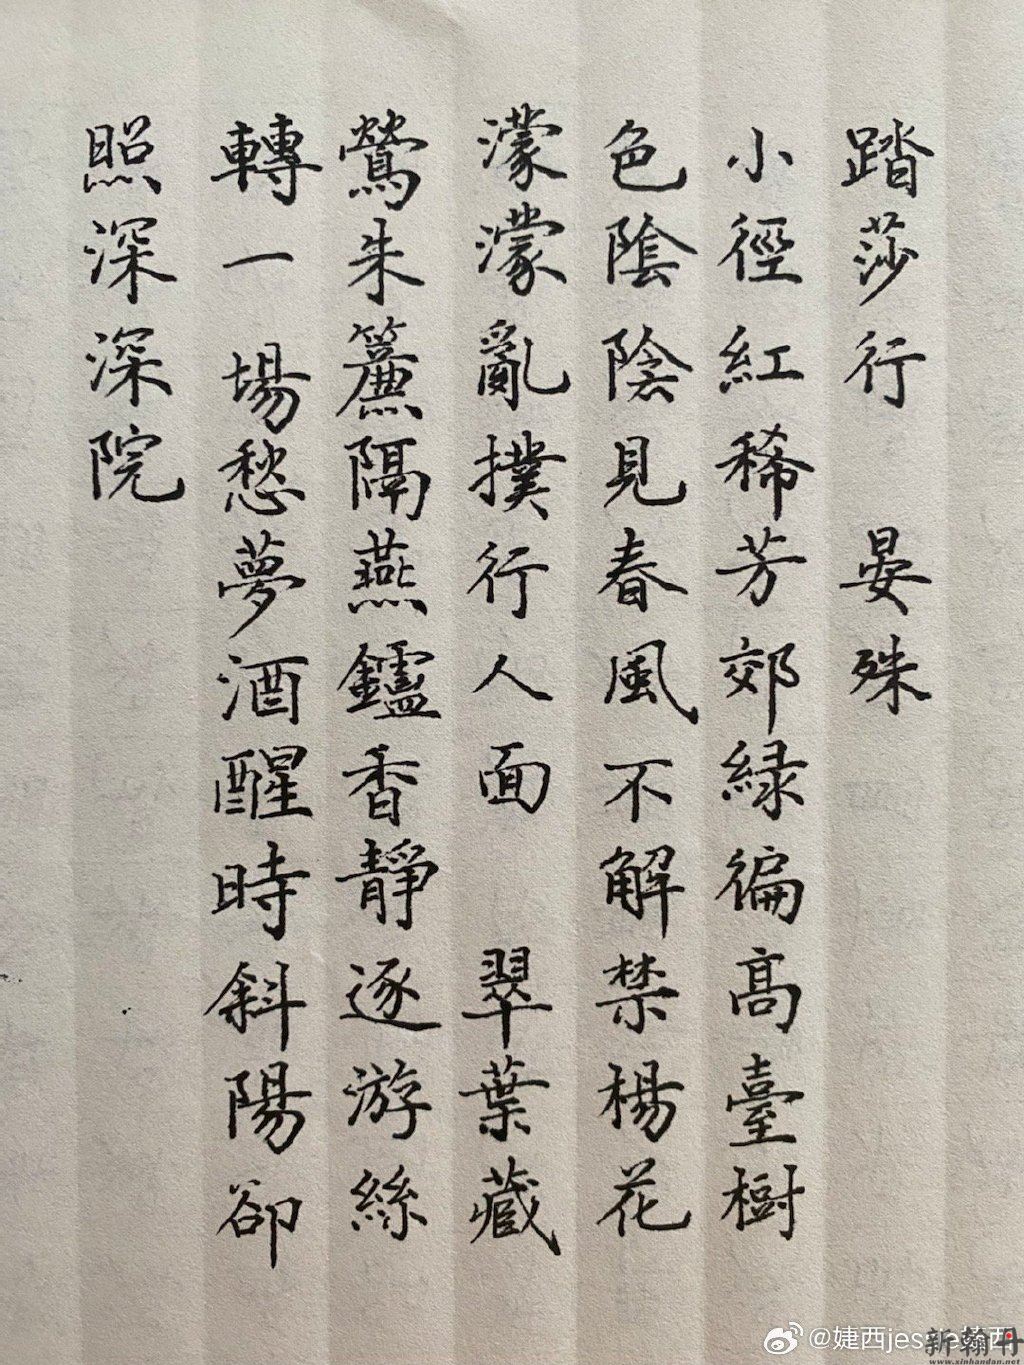 踏莎行 晏殊
小徑紅稀芳郊緑徧高臺樹
色陰陰見春風不解禁楊花
濛濛亂撲行人面 翠葉藏
鶯朱簾隔燕鑪香靜逐游絲
轉一場愁夢酒醒時斜陽卻
照深深院
新翰丹
www.xinhandan.net